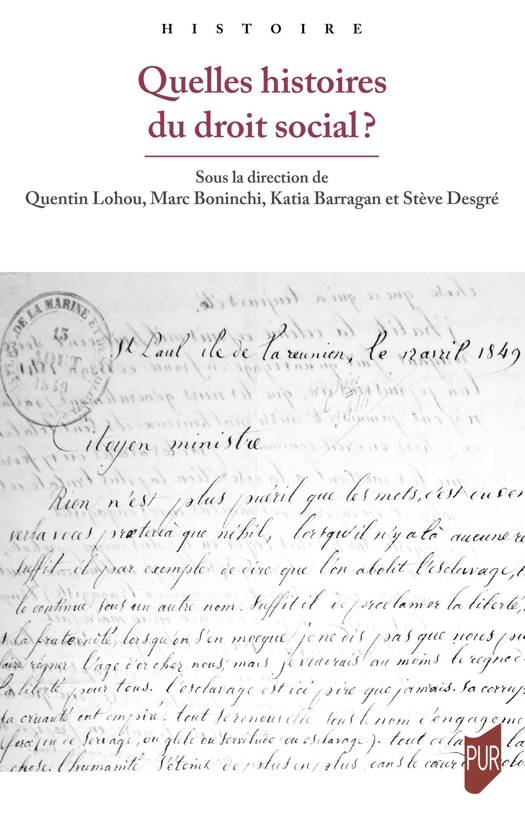 HISTOIRE
Quelles histoires
du droit social ?
Sous la direction de
Quentin Lohou, Marc Boninchi, Katia Barragan et Stève Desgré
DE LA MARINE ET
13
AOUT
1849
St Paul ile de la reunion, le 12 avril 1849
Citoyen ministre
Rien n'est plus puéril que les mots, c'est
verba voces prætereà que nihil, lorsqu'il n'y a là aucune
suffit il par exemple de dire que l'on abolit l'esclavage,
le continue sous un autre nom. Suffit il de proclamer la liberté,
la fraternité, lorsqu'on s'en mocque je ne dis pas que nous
faire régner l'âge d'or chez nous, mais je voudrais au moins le regne d
la liberté pour tous. l'esclavage est ici pire que jamais. sa
sa cruauté ont empiré. tout se renouvelle sous le nom d'engageme
de servage, ou glèbe ou servitude ou esclavage). tout cela la
chose. l'humanité s'éteint de plus en plus dans le cœur
PUR